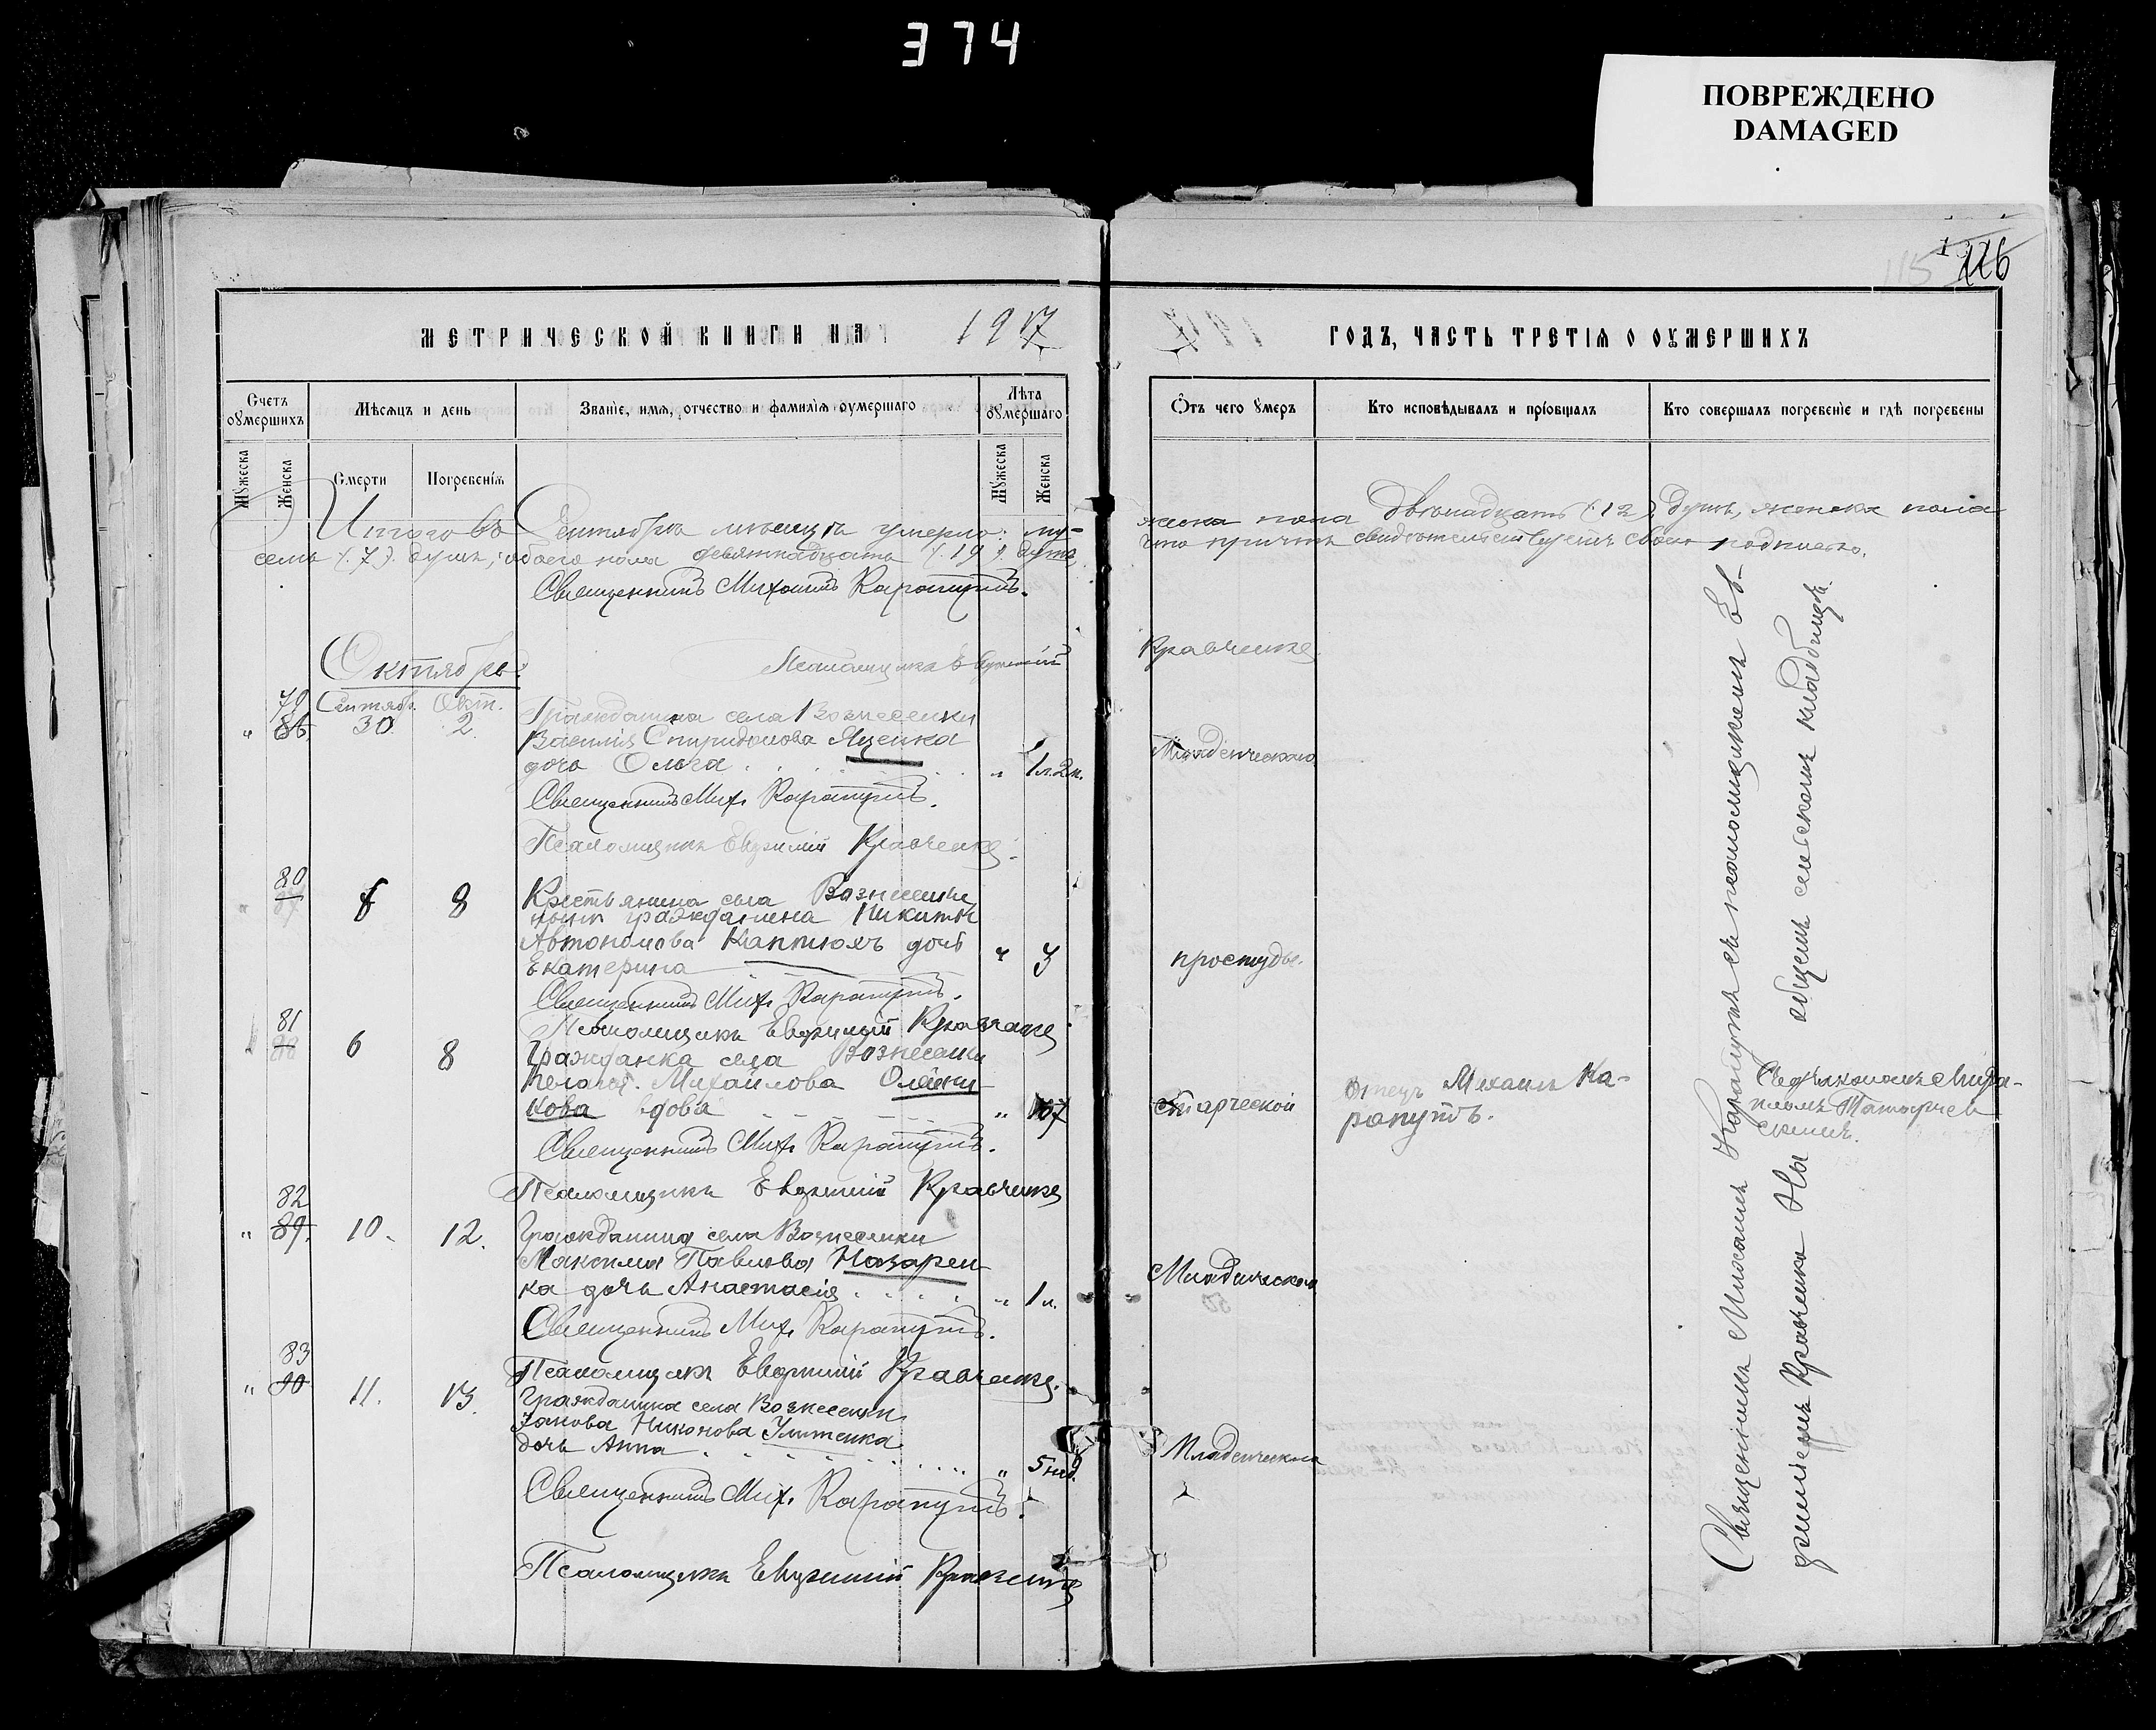 374
ПОВРЕЖДЕНО
DAMAGED
115 116
МЕТРИЧЕСКОЙ КНИГИ НА 1917
Счетъ оумершихъ
Мѣсяцъ и день
Званіе, имя, отчество и фамилія оумершаго
Лѣта оумершаго
Мужеска
Женска
Смерти
Погребенія
Мужеска
Женска
Итого въ Сентябрѣ мѣсяцѣ умерло: му-
семь (7) душъ; обоего пола девятнадцать (19) душъ
Священникъ Михаилъ Карапутъ.
Октябрь.
Псаломщикъ Евфимій
Сентябр. Окт.
79
" 86. 30. 2.
Гражданина села Вознесенки
Василія Спиридонова Яценка
дочь Ольга . . . " 1 л. 2 м.
Священникъ Мих. Карапутъ.
Псаломщикъ Евфимій Кравченко
80
" 87 6 8
Крестьянина села Вознесенки
нынѣ гражданина Никиты
Автономова Каптюхъ дочь
Екатерина " 3
Священникъ Мих. Карапутъ.
81
" 88 6 8
Псаломщикъ Евфимій Кравченко
Гражданка села Вознесенки
Пелагія Михайлова Олейни
кова вдова " 107
Священникъ Мих. Карапутъ.
Псаломщикъ Евфимій Кравченко
82
" 89. 10. 12.
Гражданина села Вознесенки
Максима Павлова Назарен
ка дочь Анастасія . . . . " 1 л.
Священникъ Мих. Карапутъ.
83
" 90 11. 13.
Псаломщикъ Евфимій Кравченко.
Гражданина села Вознесенки
Никонова
дочь Анна " 5 нед.
Священникъ Мих. Карапутъ.
Псаломщикъ Евфимій Кравченко
ГОДЪ, ЧАСТЬ ТРЕТІЯ О ОУМЕРШИХЪ
Ѿтъ чего умеръ
Кто исповѣдывалъ и пріобщалъ
Кто совершалъ погребеніе и гдѣ погребены
жеска пола двѣнадцать (12) душъ, женска пола
что причтъ свидѣтельствуетъ своею подписью.
Кравченко
Младенческаго
простуды.
Старческой
Отецъ Михаилъ Ка-
рапутъ.
Съ діакономъ
Младенческой
Младенческой
Священникъ Михаилъ Карапутъ съ псаломщикомъ Ев-
фиміемъ Кравченко На общемъ сельскомъ кладбищѣ.